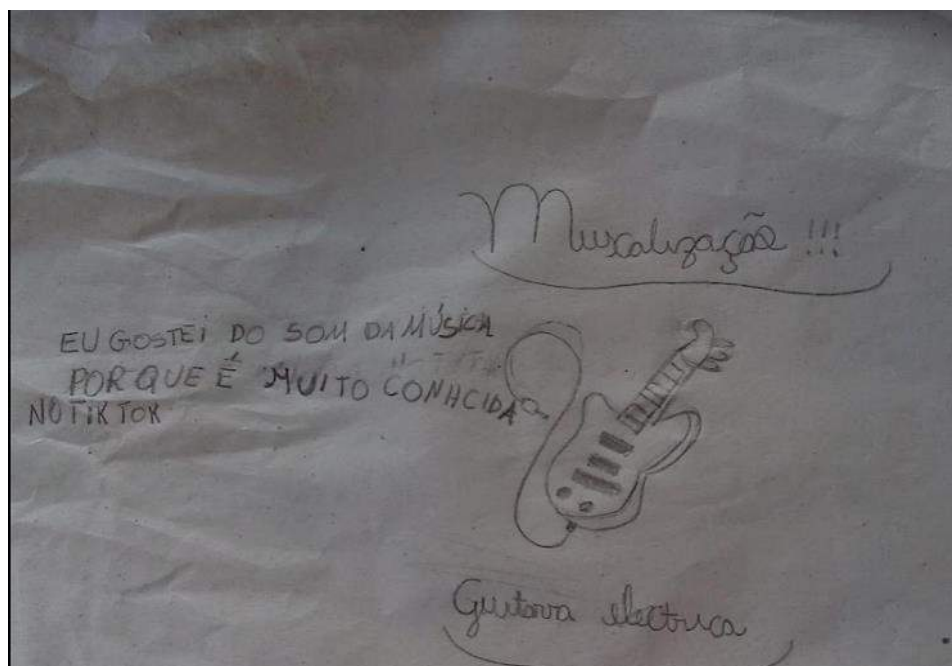 Muscalização !!!
EU GOSTEI DO SOM DA MÚSICA
POR QUE É MUITO CONHCIDA
NO TIK TOK
Guitarra electrica